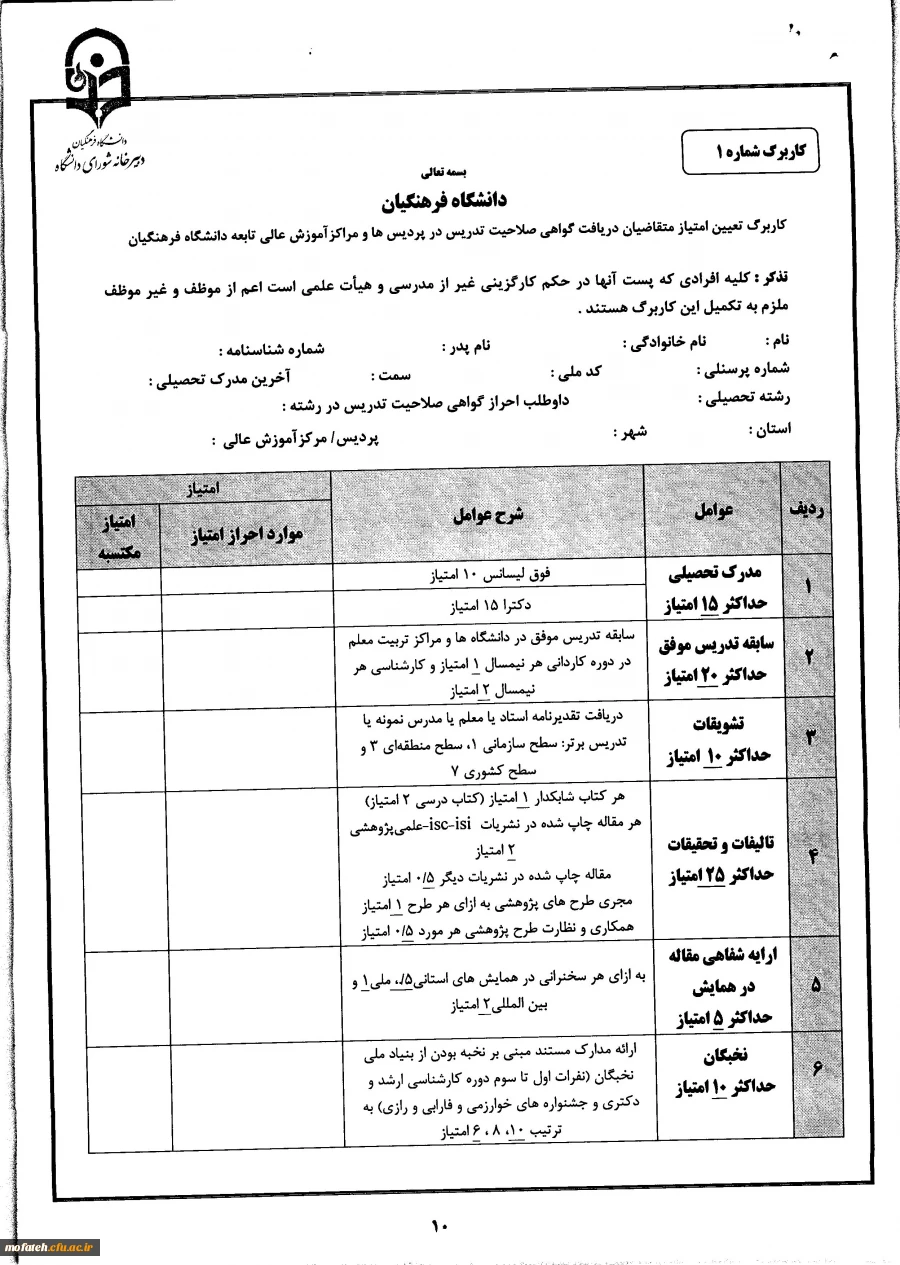 دانشگاه فرهنگیان
دبیرخانه شورای دانشگاه
کاربرگ شماره ۱
بسمه تعالی
دانشگاه فرهنگیان
کاربرگ تعیین امتیاز متقاضیان دریافت گواهی صلاحیت تدریس در پردیس ها و مراکز آموزش عالی تابعه دانشگاه فرهنگیان
تذکر : کلیه افرادی که پست آنها در حکم کارگزینی غیر از مدرسی و هیأت علمی است اعم از موظف و غیر موظف
ملزم به تکمیل این کاربرگ هستند .
نام : نام خانوادگی : نام پدر : شماره شناسنامه :
شماره پرسنلی : کد ملی : سمت : آخرین مدرک تحصیلی :
رشته تحصیلی : داوطلب احراز گواهی صلاحیت تدریس در رشته :
استان : شهر : پردیس/ مرکز آموزش عالی :
ردیف عوامل شرح عوامل امتیاز
موارد احراز امتیاز امتیاز
مکتسبه
۱
مدرک تحصیلی
حداکثر ۱۵ امتیاز
فوق لیسانس ۱۰ امتیاز
دکترا ۱۵ امتیاز
۲
سابقه تدریس موفق
حداکثر ۲۰ امتیاز
سابقه تدریس موفق در دانشگاه ها و مراکز تربیت معلم
در دوره کاردانی هر نیمسال ۱ امتیاز و کارشناسی هر
نیمسال ۲ امتیاز
۳
تشویقات
حداکثر ۱۰ امتیاز
دریافت تقدیرنامه استاد یا معلم یا مدرس نمونه یا
تدریس برتر: سطح سازمانی ۱، سطح منطقه‌ای ۳ و
سطح کشوری ۷
۴
تالیفات و تحقیقات
حداکثر ۲۵ امتیاز
هر کتاب شابکدار ۱ امتیاز (کتاب درسی ۲ امتیاز)
هر مقاله چاپ شده در نشریات isc-isi-علمی‌پژوهشی
۲ امتیاز
مقاله چاپ شده در نشریات دیگر ۰/۵ امتیاز
مجری طرح های پژوهشی به ازای هر طرح ۱ امتیاز
همکاری و نظارت طرح پژوهشی هر مورد ۰/۵ امتیاز
۵
ارایه شفاهی مقاله
در همایش
حداکثر ۵ امتیاز
به ازای هر سخنرانی در همایش های استانی ۰/۵، ملی ۱ و
بین المللی ۲ امتیاز
۶
نخبگان
حداکثر ۱۰ امتیاز
ارائه مدارک مستند مبنی بر نخبه بودن از بنیاد ملی
نخبگان (نفرات اول تا سوم دوره کارشناسی ارشد و
دکتری و جشنواره های خوارزمی و فارابی و رازی) به
ترتیب ۱۰، ۸، ۶ امتیاز
۱۰
mofateh.cfu.ac.ir